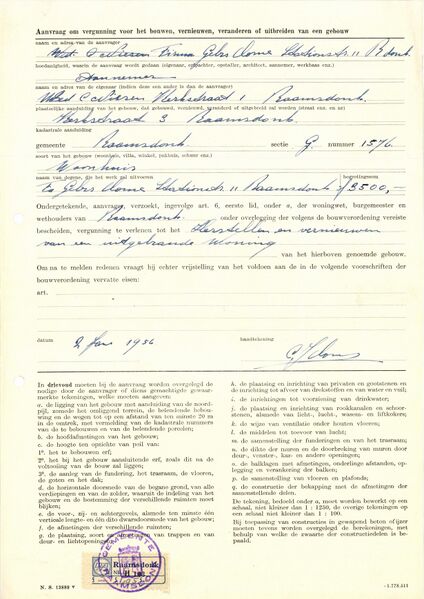 Aanvraag om vergunning voor het bouwen, vernieuwen, veranderen of uitbreiden van een gebouw
naam en adres van de aanvrager
Firma Gebrs Stationsstr 11 R donk
hoedanigheid, waarin de aanvraag wordt gedaan (eigenaar, erfpachter, opstaller, architect, aannemer, werkbaas enz.)
Aannemer
naam en adres van de eigenaar (indien deze een ander is dan de aanvrager)
Kerkstraat 1 Raamsdonk
plaatselijke aanduiding van het gebouw, dat gebouwd, vernieuwd, veranderd of uitgebreid zal worden (straat enz. en
Kerkstraat 3 Raamsdonk.
kadastrale aanduiding
gemeente Raamsdonk sectie G. nummer 1576.
soort van het gebouw (woonhuis, villa, winkel, pakhuis, schuur enz.)
Woonhuis
naam van degene, die het werk zal uitvoeren begrootingsom
Fa Gebrs Stationsstr 11 Raamsdonk f 3500,—
Ondergetekende, aanvrager, verzoekt, ingevolge art. 6, eerste lid, onder a, der woningwet, burgemeester en
wethouders van Raamsdonk onder overlegging der volgens de bouwverordening vereiste
bescheiden, vergunning te verlenen tot het Herstellen en vernieuwen
van een uitgebrande Woning
van het hierboven genoemde gebouw.
Om na te melden redenen vraagt hij echter vrijstelling van het voldoen aan de in de volgende voorschriften der
bouwverordening vervatte eisen:
art.
datum 2 Jan 1956 handtekening
In drievoud moeten bij de aanvrage worden overgelegd de
nodige door de aanvrager of diens gemachtigde gewaarmerkte
tekeningen, welke moeten aangeven:
a. de ligging van het gebouw met aanduiding van de noordpijl,
zomede het omliggend terrein, de belendende bebouwing
en de wegen tot op een afstand van ten minste 20 m
in de omtrek, met vermelding van de kadastrale nummers
van de te bebouwen en van de belendende percelen;
b. de hoofdafmetingen van het gebouw;
c. de hoogte ten opzichte van peil van:
1°. het te bebouwen erf;
2°. het bij het gebouw aansluitende erf, zoals dit na de
voltooiing van de bouw zal liggen;
3°. de aanleg van de fundering, het trasraam, de vloeren,
de goten en het dak;
d. de horizontale doorsnede van de begane grond, van alle
verdiepingen en van de zolder, waaruit de indeling van het
gebouw en de bestemming der verschillende ruimten moet
blijken;
e. de voor-, zij- en achtergevels, alsmede ten minste één
verticale lengte- en één dito dwarsdoorsnede van het gebouw;
f. de afmetingen der verschillende ruimten;
g. de plaatsing, soort en afmetingen van trappen en van
deur- en lichtopeningen;
h. de plaatsing en inrichting van privaten en gootstenen en
de inrichting tot afvoer van drekstoffen en van water en vuil;
i. de inrichtingen tot voorziening van drinkwater;
j. de plaatsing en inrichting van rookkanalen en schoorstenen,
alsmede van licht-, lucht-, wasem- en liftkokers;
k. de wijze van ventilatie onder houten vloeren;
l. de middelen tot toevoer van lucht;
m. de samenstelling der funderingen en van het trasraam;
n. de dikte der muren en de doorbreking van muren door
deur-, venster-, kas- en andere openingen;
o. de balklagen met afmetingen, onderlinge afstanden, oplegging
en verankering der balken;
p. de samenstelling van vloeren en plafonds;
q. de constructie der bekapping met de afmetingen der
samenstellende delen.
De tekening, bedoeld onder a, moet worden bewerkt op een
schaal, niet kleiner dan 1 : 1250, de overige tekeningen op
een schaal niet kleiner dan 1 : 100.
Bij toepassing van constructies in gewapend beton of ijzer
moeten tevens worden overgelegd de berekeningen, met
behulp van welke de zwaarte der constructiedelen is bepaald.
GEMEENTE
Raamsdonk
N. S. 13889 *